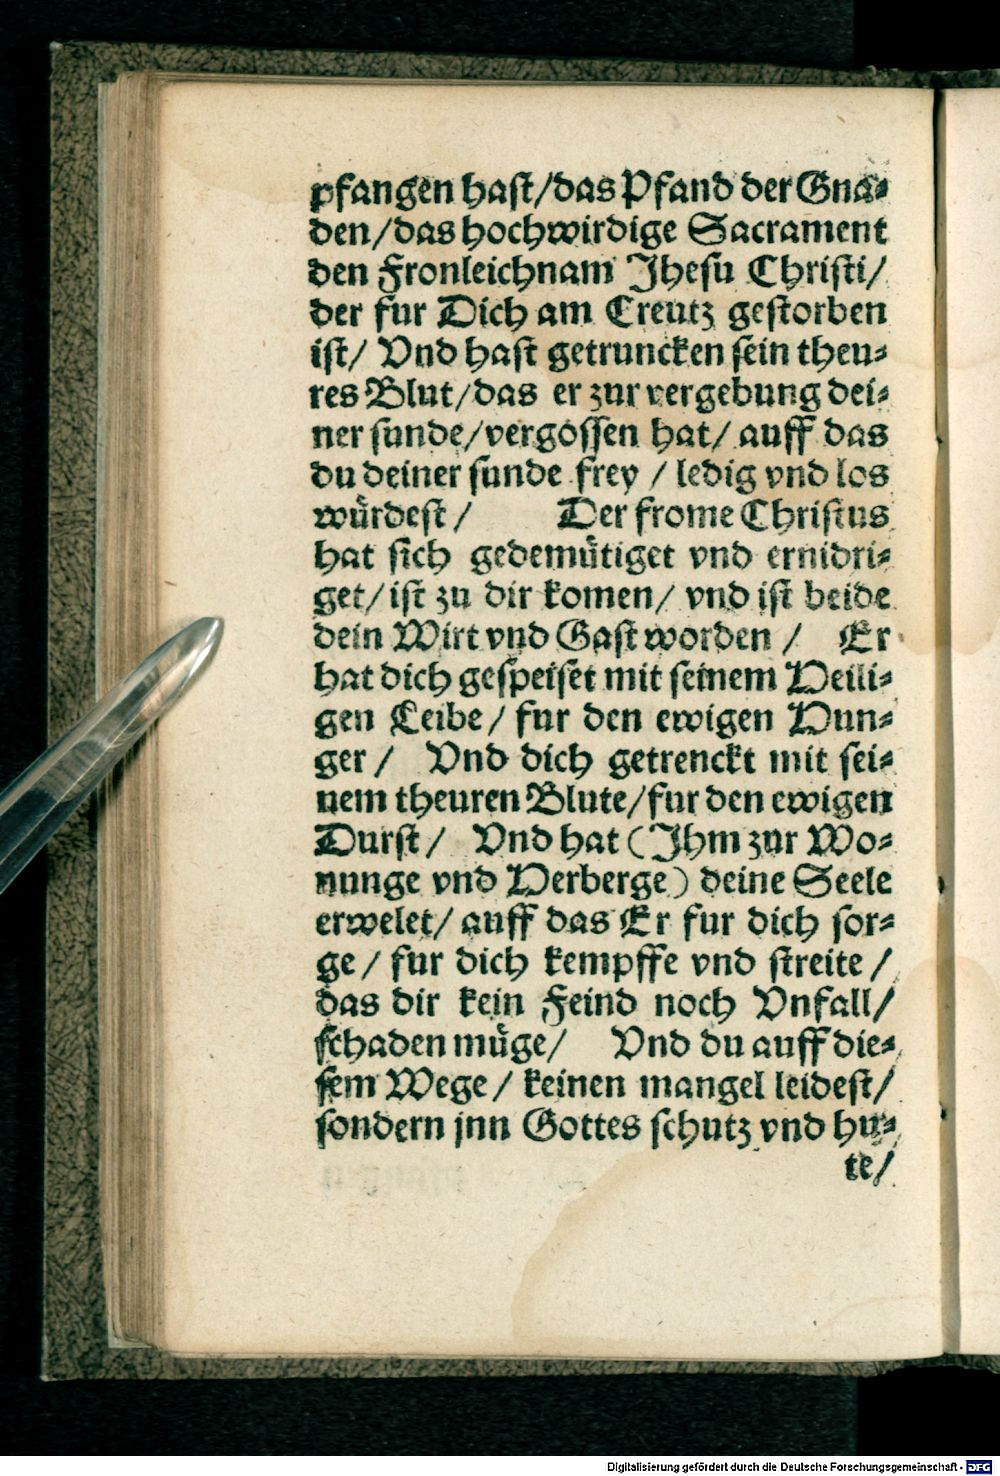 pfangen hast/das Pfand der Gna⸗
den/das hochwirdige Sacrament
den Fronleichnam Jhesu Christi/
der fur Dich am Creutz gestorben
ist/ Vnd hast getruncken sein theu⸗
res Blut/das er zur vergebung dei⸗
ner sunde/vergossen hat/ auff das
du deiner sunde frey / ledig vnd los
würdest / Der frome Christus
hat sich gedemütiget vnd ernidri⸗
get/ ist zu dir komen/ vnd ist beide
dein Wirt vnd Gast worden / Er
hat dich gespeiset mit seinem Heili⸗
gen Leibe / fur den ewigen Hun⸗
ger / Vnd dich getrenckt mit sei⸗
nem theuren Blute/fur den ewigen
Durst / Vnd hat (Jhm zur Wo⸗
nunge vnd Herberge) deine Seele
erwelet/ auff das Er fur dich sor⸗
ge / fur dich kempffe vnd streite /
das dir kein Feind noch Vnfall/
schaden müge/ Vnd du auff die⸗
sem Wege / keinen mangel leidest/
sondern jnn Gottes schutz vnd hu⸗
te/
Digitalisierung gefördert durch die Deutsche Forschungsgemeinschaft - DFG